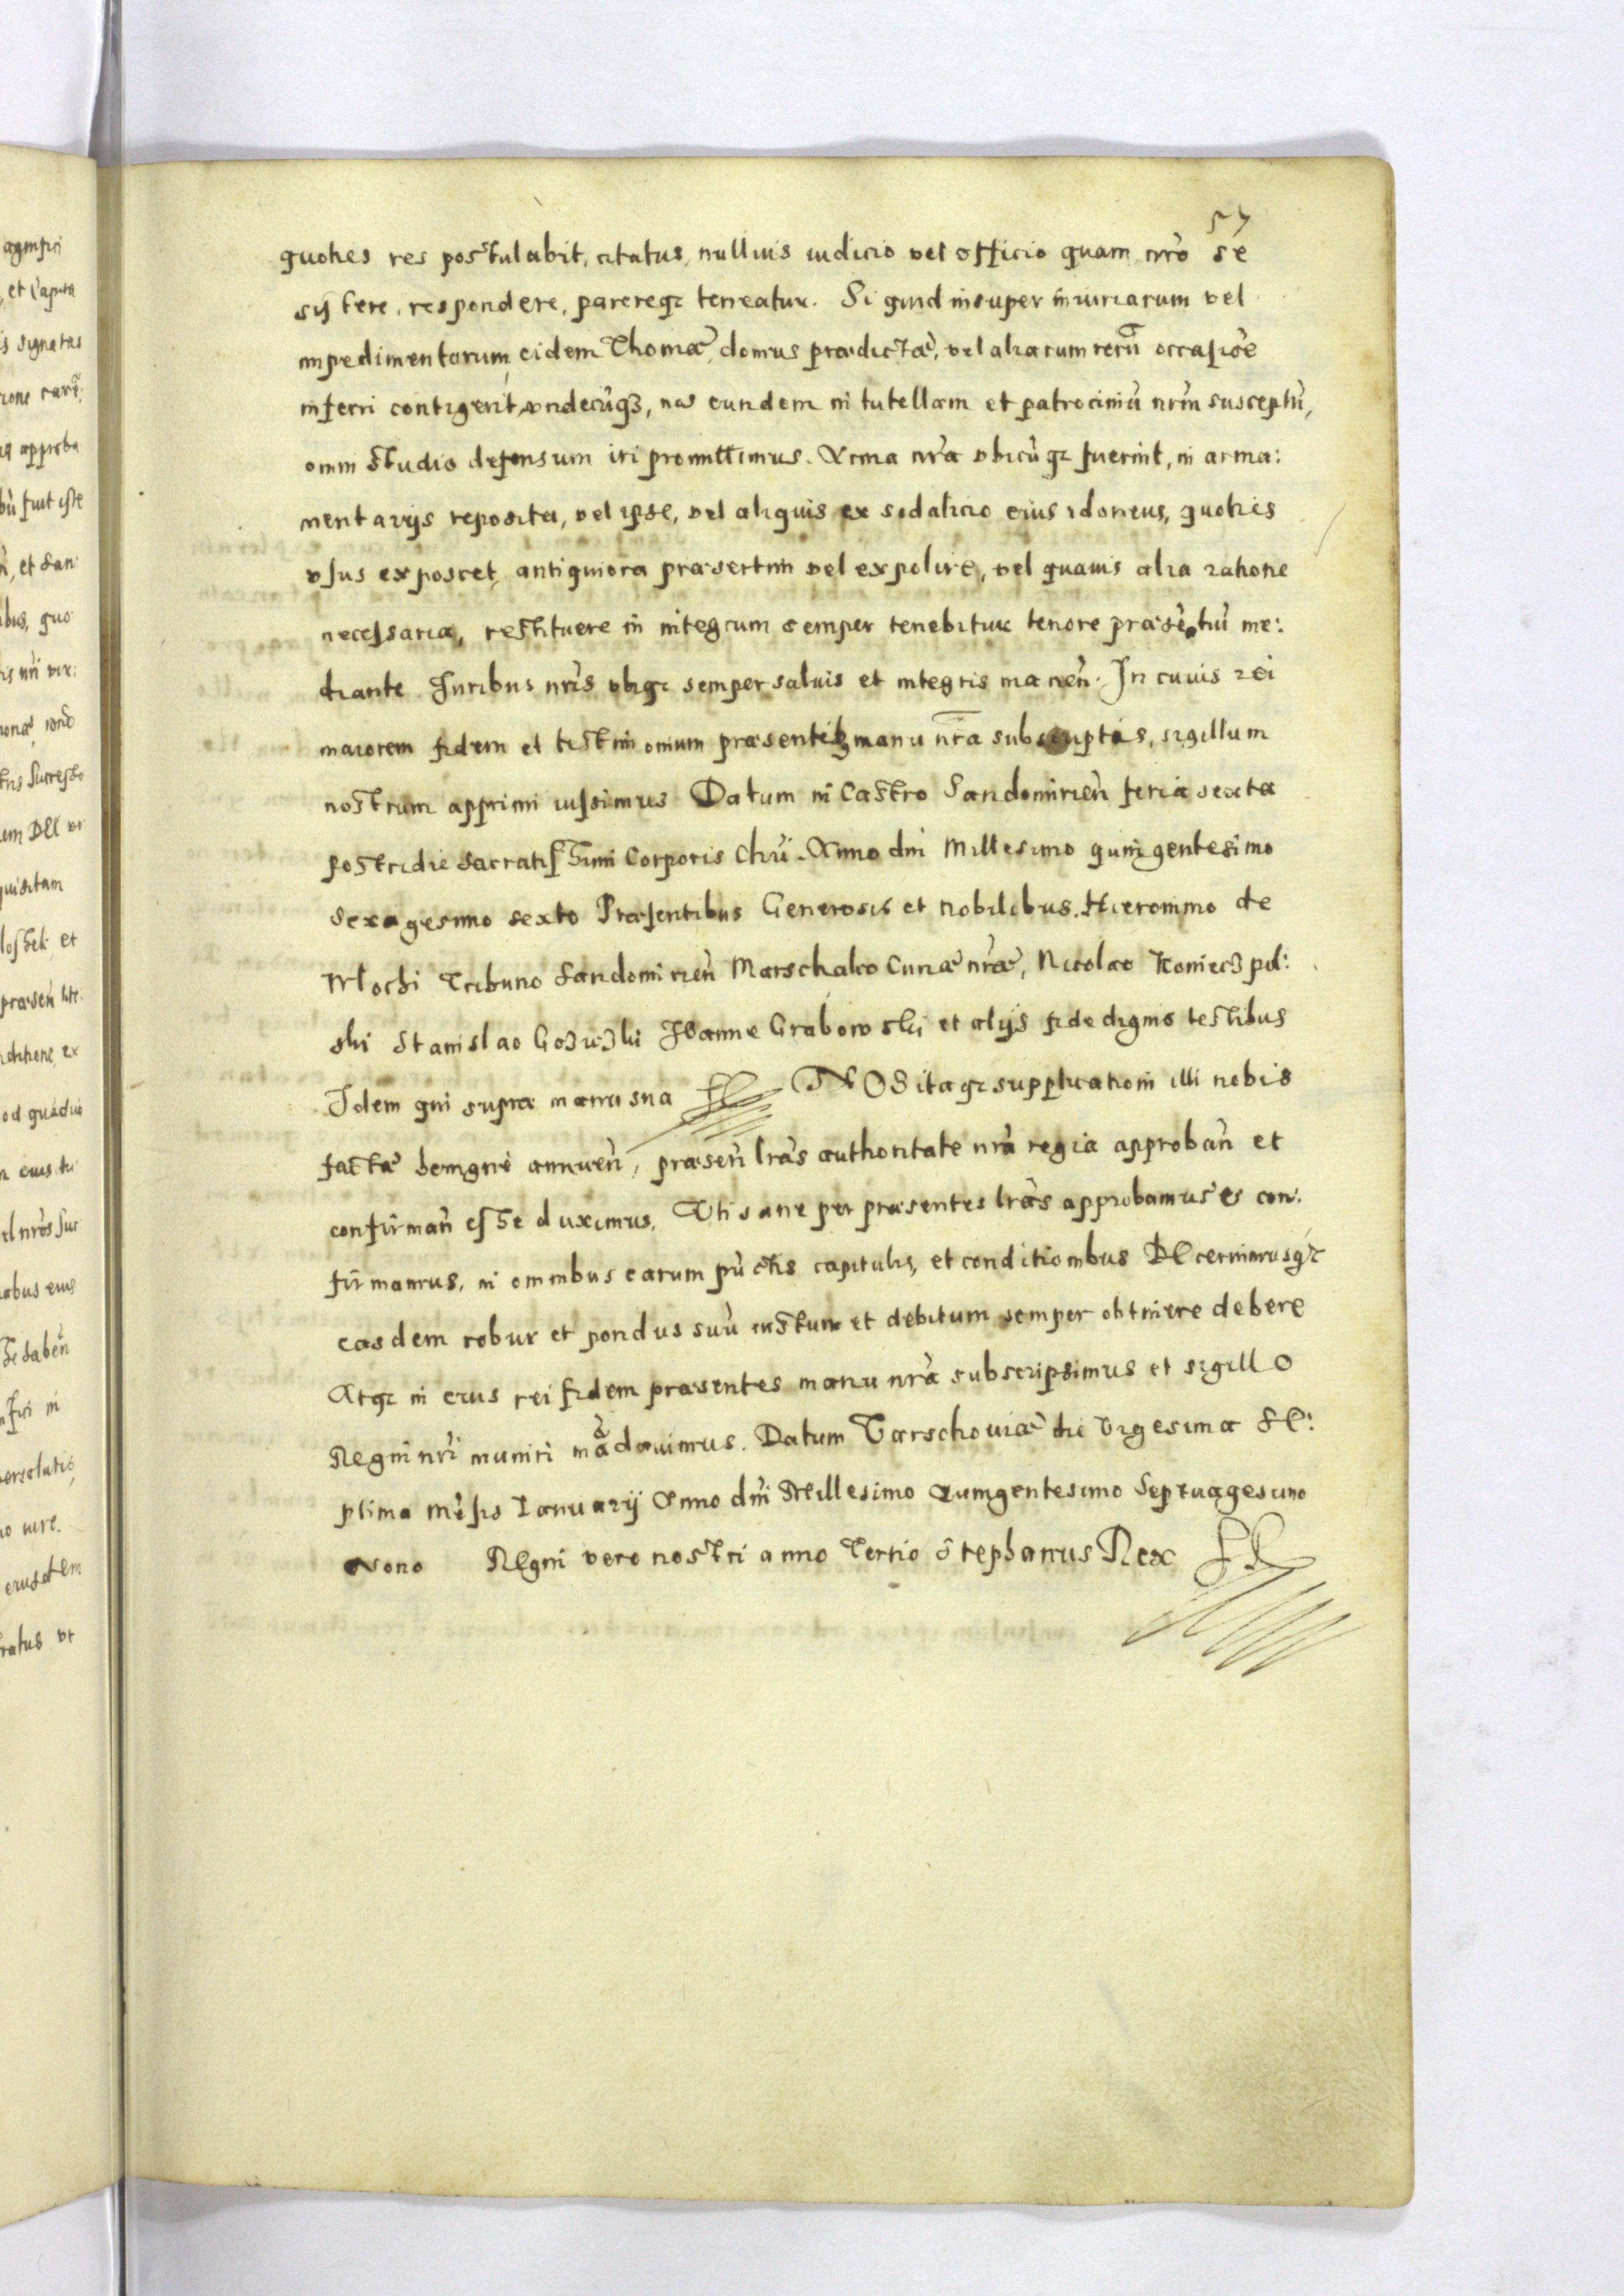 57
quoties res postulabit, citatus, nullius iudicio vel officio quam nrõ se
sistere, respondere, parereqz teneatur. Si quid insuper iniuriarum vel
impedimentorum, eidem Thomæ, domus prædictæ, vel aliarum rerũ occasiõe
inferri contigerit, vndecũqz, nos eundem in tutellam et patrociniũ nrm̃ susceptũ,
omni studio defensum iri promittimus. Arma nrã vbicũqz fuerint, in arma:
mentarijs reposita, vel ipse, vel aliquis ex sodalicio eius idoneus, quoties
vsus exposcet, antiquiora præsertim vel expolire, vel quauis alia ratione
necessaria, restituere in integrum semper tenebitur tenore præsẽtiũ me:
diante Iuribus nrĩs vbiqz semper saluis et integris maneñ. In cuius rei
maiorem fidem et testimonium præsentibz manu nrã subscriptis, sigillum
nostrum apprimi iussimus Datum in Castro Sandomirieñ feria sexta
postridie sacratissimi Corporis Chrĩ. Anno dnĩ Millesimo quingentesimo
sexagesimo sexto Præsentibus Generosis et nobilibus. Hieronimo de
Wlochi Tribuno Sandomirieñ Marschalco Curiæ nrẽ, Nicolao Konieczpol:
ski Stanislao Ioanne Grabowski et alijs fide dignis testibus
Idem qui supra manu sua NOS itaqz supplicationi illi nobis
factæ benigne annueñ, præseñ lrãs authoritate nrã regia approbañ et
confirmañ esse duximus, Vti sane per præsentes lrãs approbamus et con:
firmamus, in omnibus earum pũctis capitulis, et conditionibus Decernimusqz
easdem robur et pondus suũ iustum et debitum semper obtinere debere
Atqz in eius rei fidem præsentes manu nrã subscripsimus et sigillo
Regni nrĩ muniri mãdauimus. Datum Varschoviæ die vigesima se:
ptima mẽsis Ianuarij Anno dnĩ Millesimo Quingentesimo Septuagesimo
Nono Regni vero nostri anno Tertio Stephanus Rex